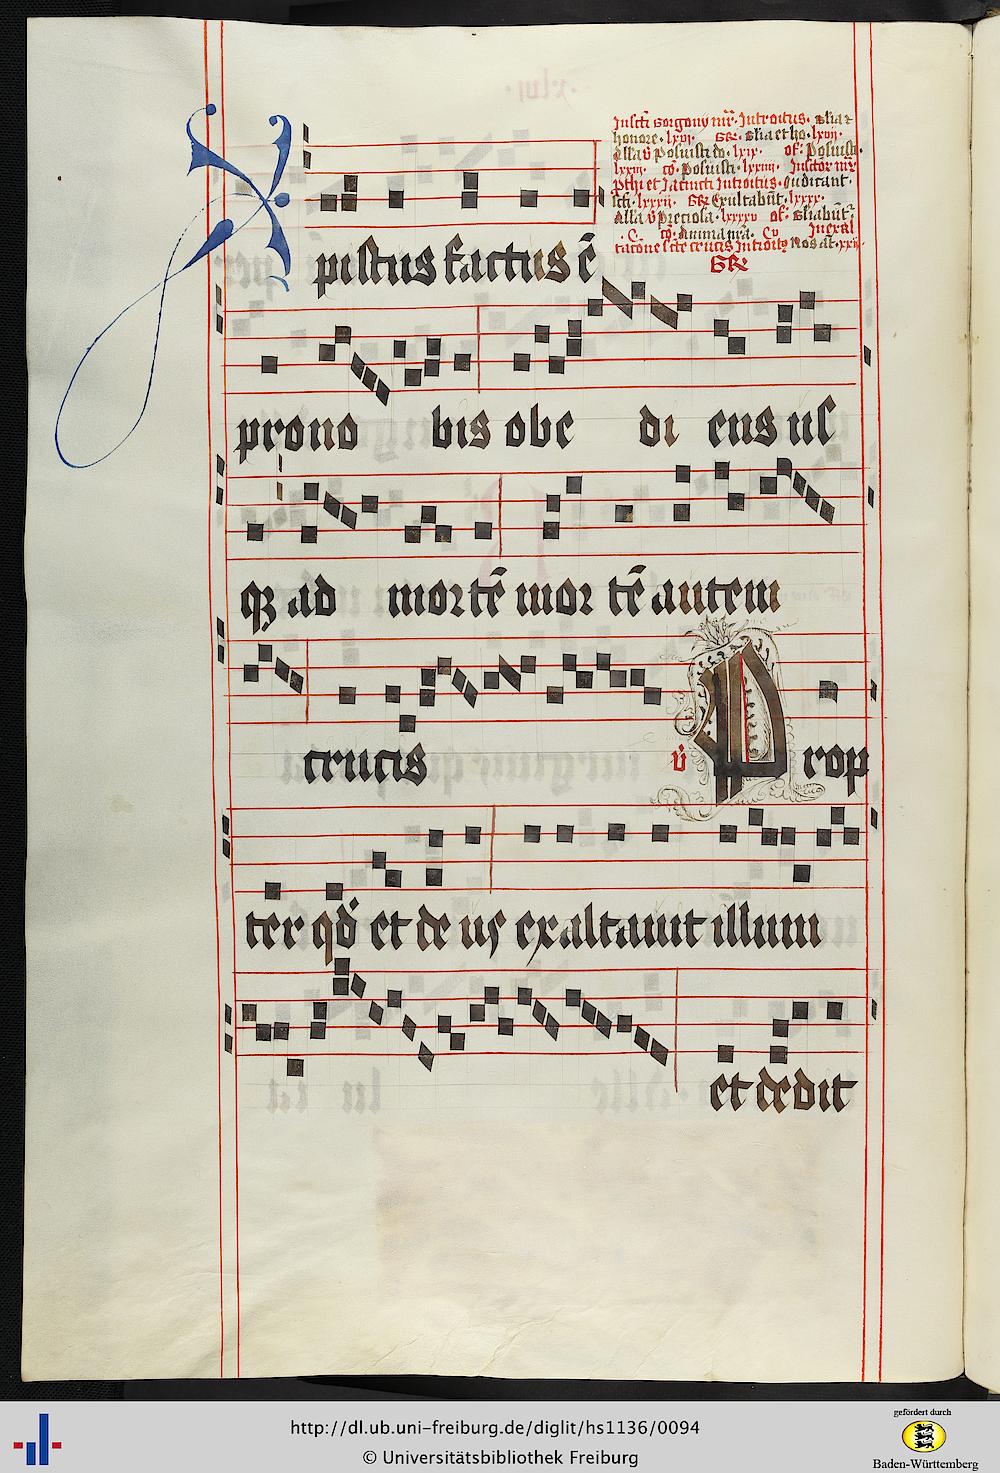 In sctī Gorgony mr̄. Introitus. Glīa ⁊
honore. lxvi. GR. Glīa et ho. lxvij.
Allaꝰ v̄ Posuisti dō. lxix. of. Posuisti.
lxxiij. cō. Posuisti. lxxiiij. In sctōr mr̄
pthi et Jacincti Introitus. Iudicant.
scti. lxxxij. GR Exultabūt. lxxxx.
Alla v̄ Preciosa. lxxxxv of. Gliabūt.
.C. cō. Animā mr̄a. Cv In exal
tacōne scte crucis Introitꝰ Nos aūt. xxij.
GR
X
pistus factus ē
pro no bis obe di ens us
qȝ ad mortē mor tē autem
crucis v̄ Prop
ter qd̓ et de us exaltauit illum
et dedit
http://dl.ub.uni-freiburg.de/diglit/hs1136/0094
© Universitätsbibliothek Freiburg
gefördert durch
Baden-Württemberg